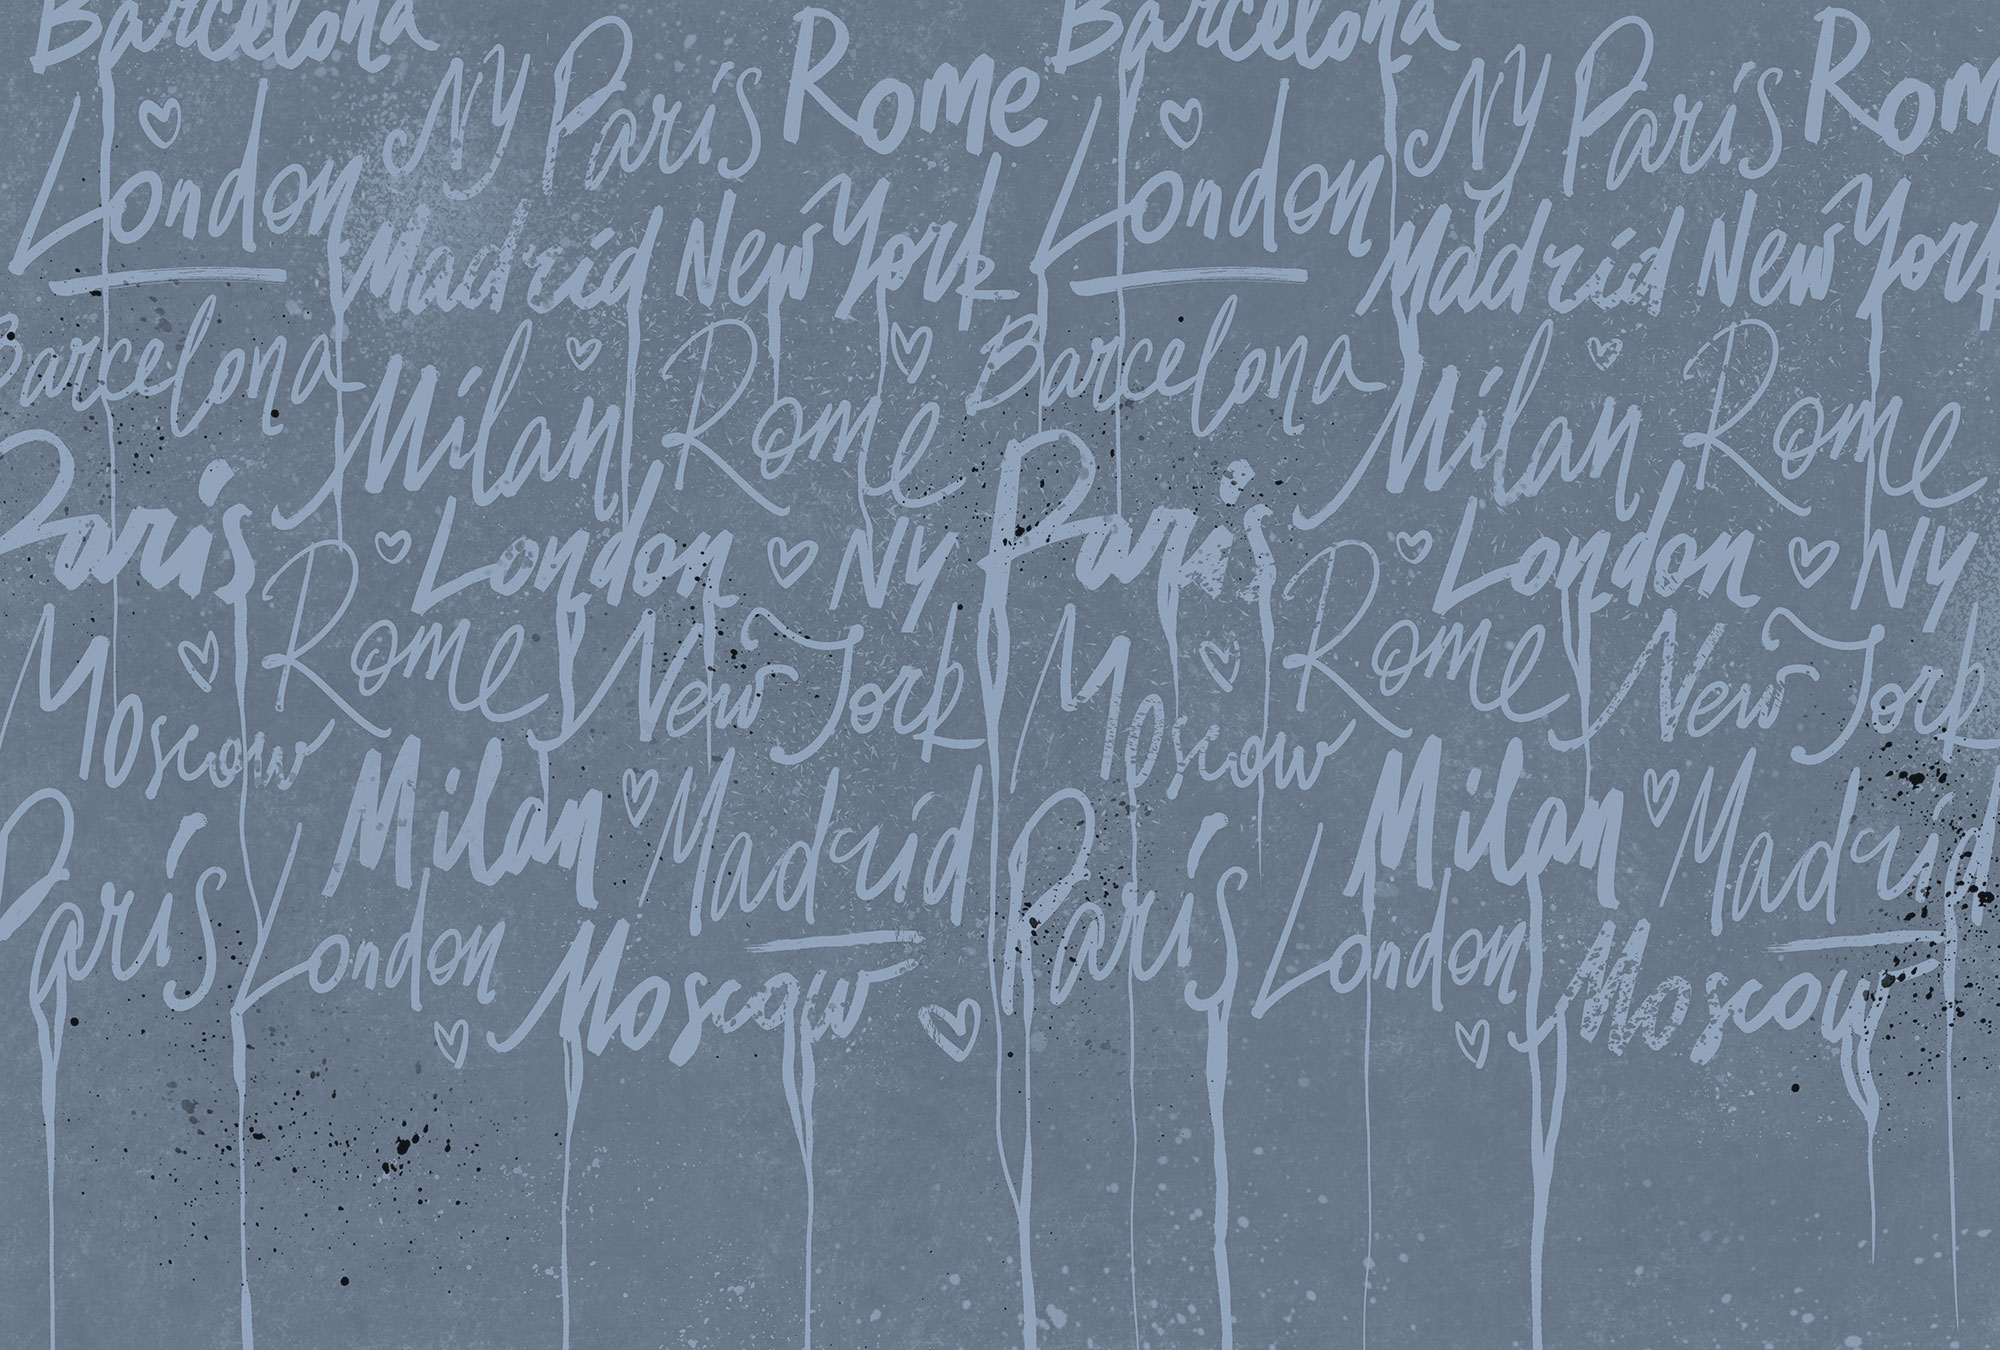 Barcelona Barcelona
Ny Paris Rome Ny Paris Rom
London London
Madrid New York Madrid New York
Barcelona Milan Rome Barcelona Milan Rome
Paris London Ny Paris London Ny
Moscow Rome New York Moscow Rome New York
Milan Madrid Milan Madrid
Paris London Moscow Paris London Moscow